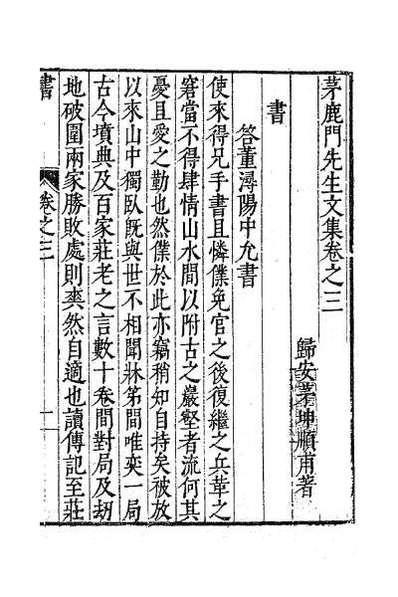 茅鹿門先生文集卷之三
歸安茅坤順甫著
書
答董潯陽中允書
使來得兄手書且憐僕免官之後復繼之兵革之
窘當不得肆情山水間以附古之巖壑者流何其
憂且愛之勤也然僕於此亦竊稍知自持矣被放
以來山中獨臥既與世不相聞牀笫間唯奕一局
古今墳典及百家莊老之言數十卷間對局及刼
地破圍兩家勝敗處則爽然自適也讀傳記至莊
書
卷之三
一